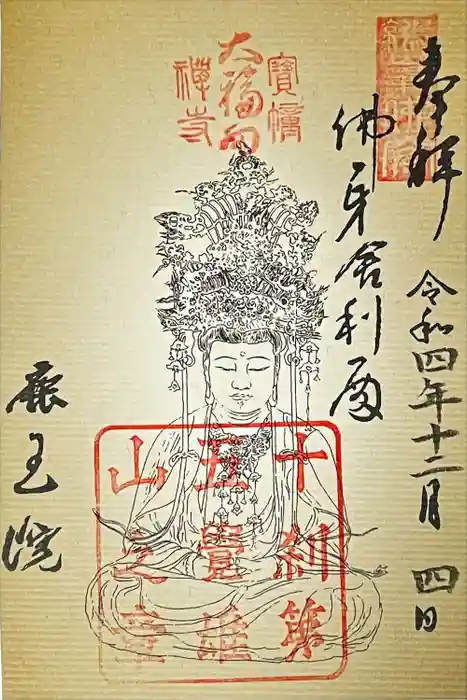 奉拝
令和四年十二月四日
佛牙舍利殿
寶幢
大福田
禪寺
十刹第
五覺雄
山之章
鹿王院